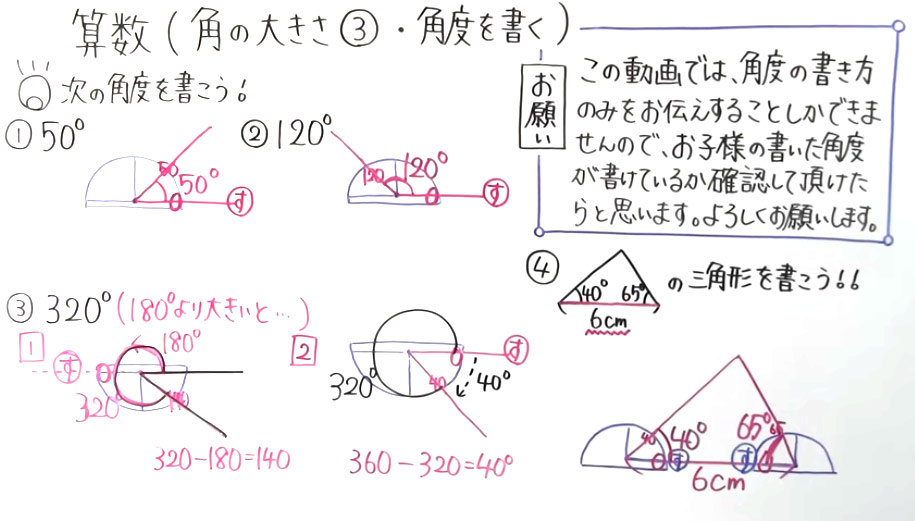 算数(角の大きさ③・角度を書く)
次の角度を書こう!
お願い
この動画では、角度の書き方
のみをお伝えすることしかできま
せんので、お子様の書いた角度
が書けているか確認して頂けた
らと思います。よろしくお願いします。
① 50°
50 50°
0 す
② 120°
120 120°
0 す
③ 320°(180°より大きいと…)
1
180°
す 0
320° 140
320-180=140
2
0 す
320° 40 40°
360-320=40°
④ 40° 65° の三角形を書こう!!
6cm
40 40° 65° 65
0 す す 0
6cm